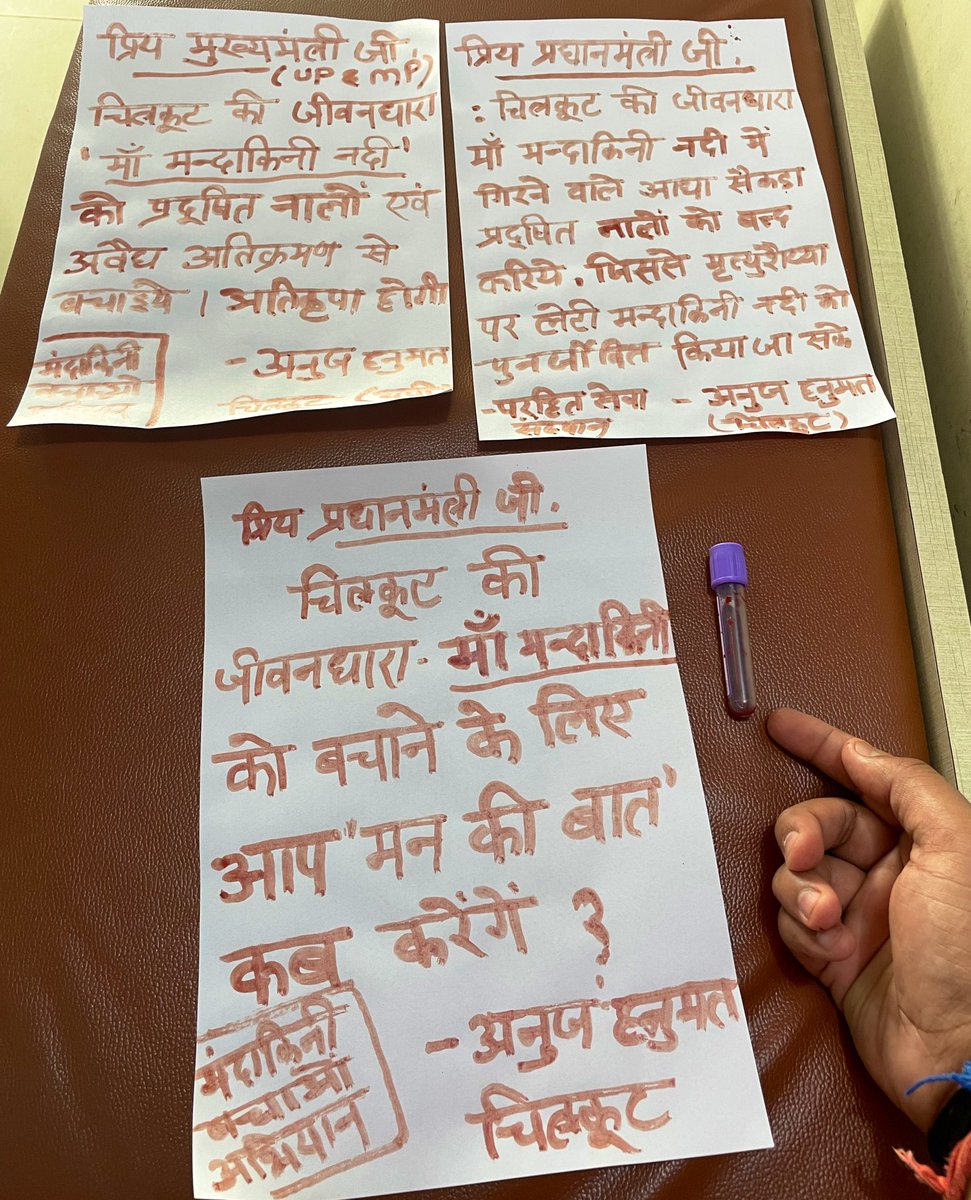 प्रिय मुख्यमंत्री जी,
(UP & MP)
चित्रकूट की जीवनधारा
'माँ मन्दाकिनी नदी'
को प्रदूषित नालों एवं
अवैध अतिक्रमण से
बचाइये । अतिकृपा होगी
मंदाकिनी
बचाओ
- अनुज हनुमत
चित्रकूट
प्रिय प्रधानमंत्री जी.
: चित्रकूट की जीवनधारा
माँ मन्दाकिनी नदी में
गिरने वाले आधा सैकड़ा
प्रदूषित नालों को बन्द
करिये . जिससे मृत्युशैय्या
पर लेटी मन्दाकिनी नदी को
पुनर्जीवित किया जा सके
- परहित सेवा
संस्थान
- अनुज हनुमत
(चित्रकूट)
प्रिय प्रधानमंत्री जी.
चित्रकूट की
जीवनधारा - माँ मन्दाकिनी
को बचाने के लिए
आप "मन की बात'
कब करेंगें ?
मंदाकिनी
बचाओ
अभियान
- अनुज हनुमत
चित्रकूट